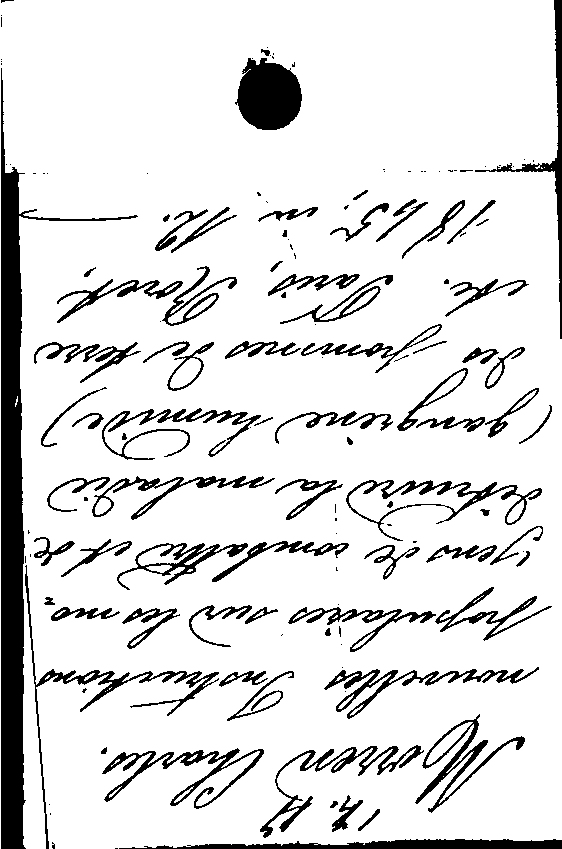 Morren Charles.
nouvelles Instructions
populaires sur les mo=
yens de combattre et de
détruire la maladie
(gangrène humide)
des pommes de terre
etc. Paris, Roret,
1845, in 12.